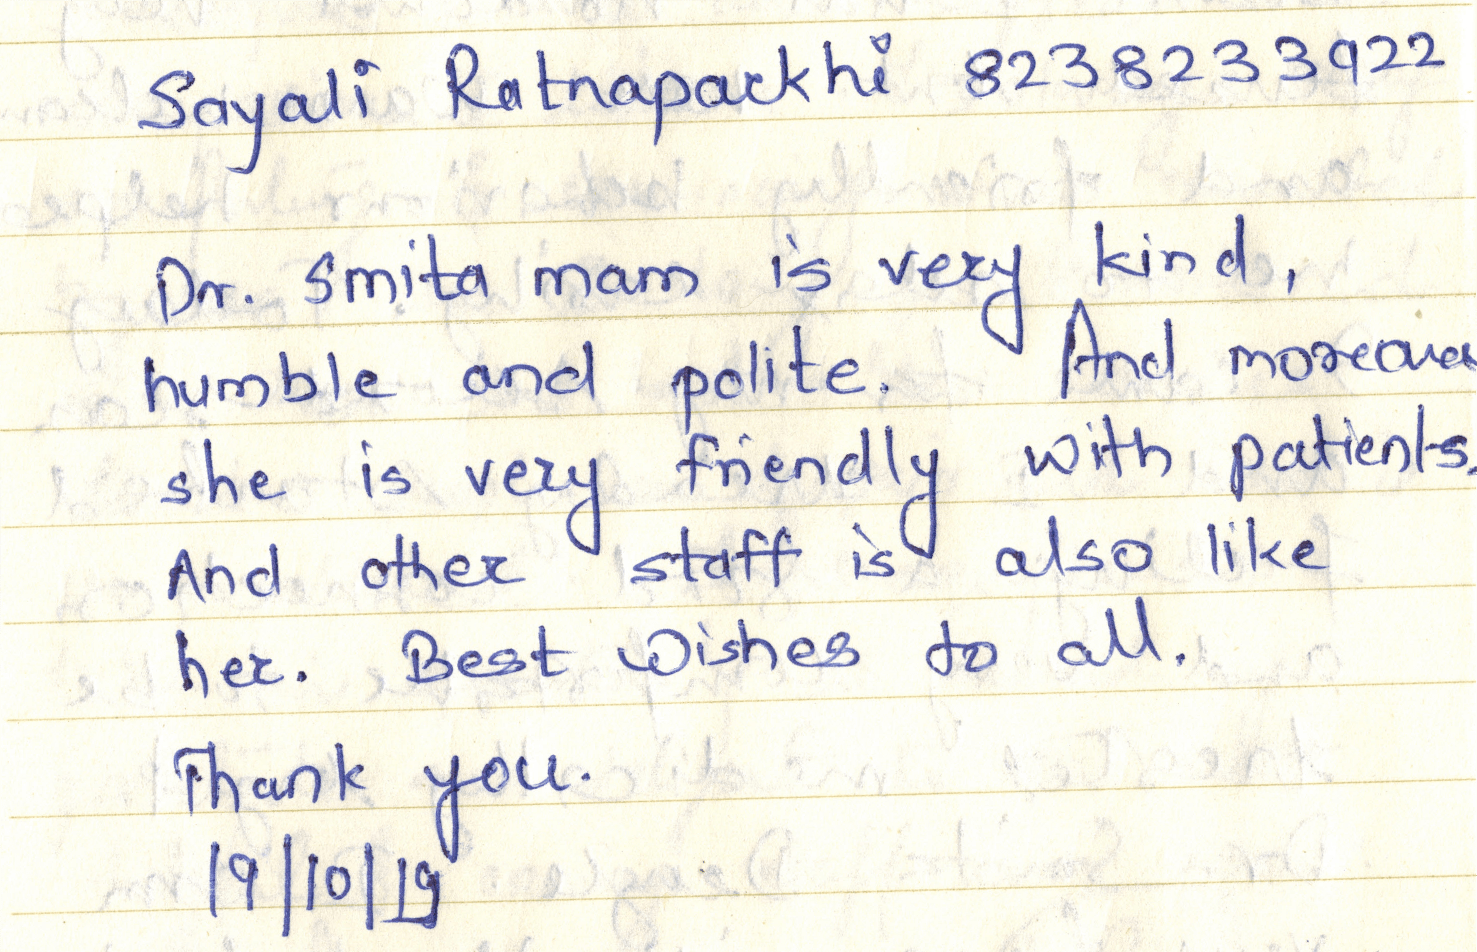 Sayali Ratnaparkhi 8238233922
Dr. Smita mam is very kind,
humble and polite. And moreover
she is very friendly with patients.
And other staff is also like
her. Best wishes to all.
Thank you.
19/10/19